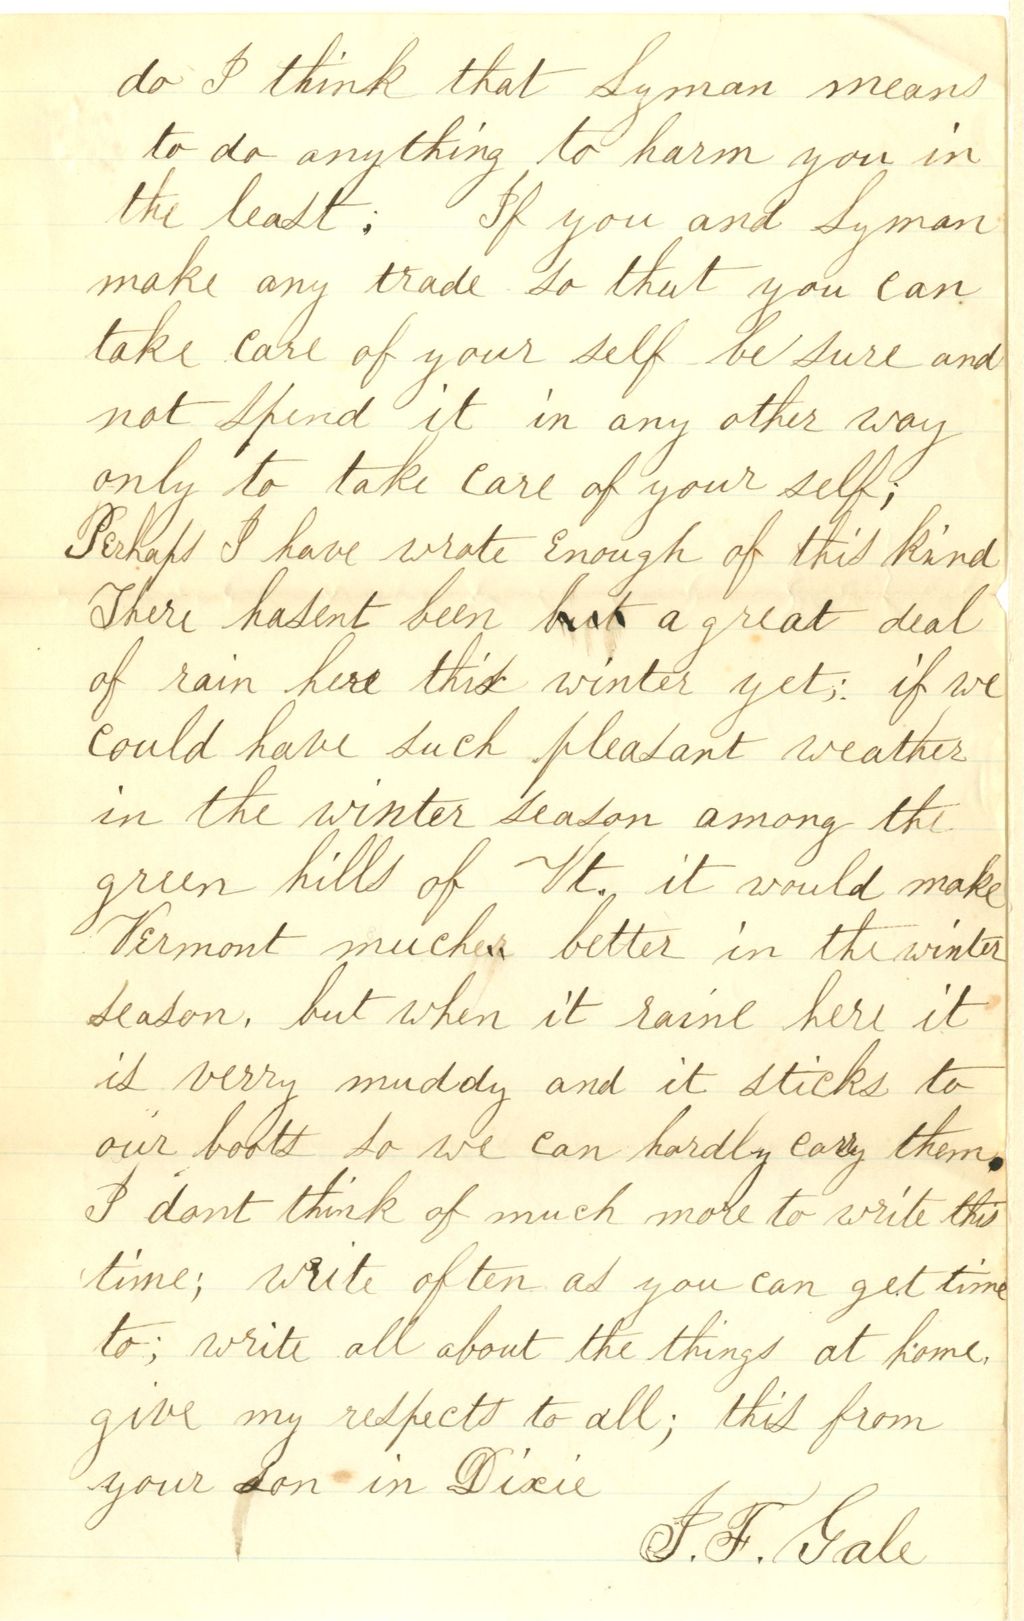 do I think that Lyman means
to do anything to harm you in
the least; If you and Lyman
make any trade so that you can
take care of your self be sure and
not spend it in any other way
only to take care of your self;
Perhaps I have wrote enough of this kind
There hasent been but a great deal
of rain here this winter yet; if we
could have such pleasant weather
in the winter season among the
green hills of Vt. it would make
Vermont much better in the winter
season. but when it raine here it
is verry muddy and it sticks to
our boots so we can hardly carry them.
I dont think of much more to write this
time; write often as you can get time
to; write all about the things at home.
give my respects to all; this from
your son in Dixie
J. F. Gale